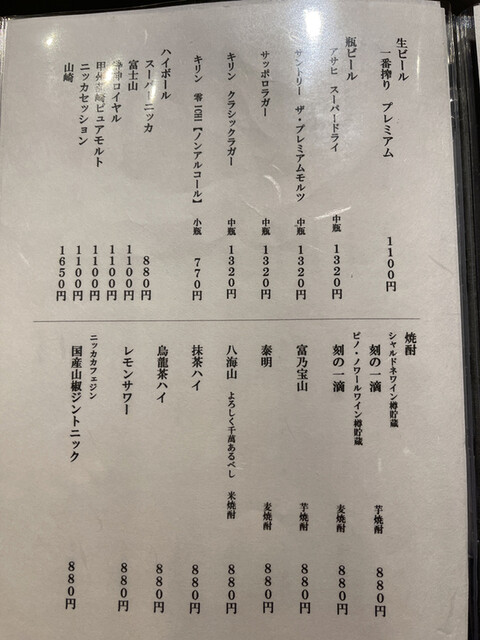 生ビール
一番搾り プレミアム 1100円
瓶ビール
アサヒ スーパードライ 中瓶 1320円
サントリー ザ・プレミアムモルツ 中瓶 1320円
サッポロラガー 中瓶 1320円
キリン クラシックラガー 中瓶 1320円
キリン 零ICHI【ノンアルコール】 小瓶 770円
ハイボール
スーパーニッカ 880円
富士山 1100円
ロイヤル 1100円
甲州韮崎ピュアモルト 1100円
ニッカセッション 1100円
山崎 1650円
焼酎
シャルドネワイン樽貯蔵
刻の一滴 芋焼酎 880円
ピノ・ノワールワイン樽貯蔵
刻の一滴 麦焼酎 880円
富乃宝山 芋焼酎 880円
泰明 麦焼酎 880円
八海山 よろしく千萬あるべし 米焼酎 880円
抹茶ハイ 880円
烏龍茶ハイ 880円
レモンサワー 880円
ニッカカフェジン
国産山椒ジントニック 880円